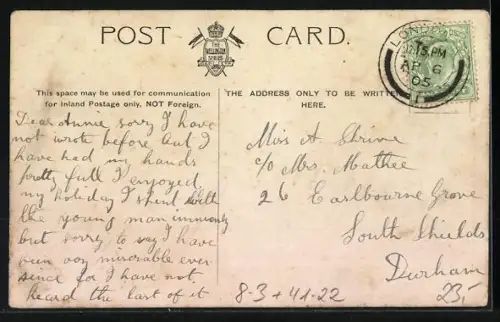 POST CARD.
THE WELLINGTON SERIES
This space may be used for communication
for Inland Postage only, NOT Foreign.
THE ADDRESS ONLY TO BE WRITTEN
HERE.
LONDON
12.15PM
AP 6
05
Dear Annie sorry I have
not wrote before but I
have had my hands
pretty full I enjoyed
my holiday I spent with
the young man
but sorry to say I have
been very miserable ever
since for I have not
heard the last of it
Miss A Shrive
c/o Mrs. Mathee
26 Earlbourne Grove
South Shields
Durham
8-3 + 41-22
23,-